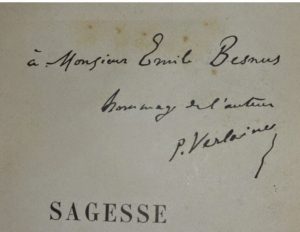 à Monsieur Emile Besnus
hommage de l'auteur
P. Verlaine
SAGESSE